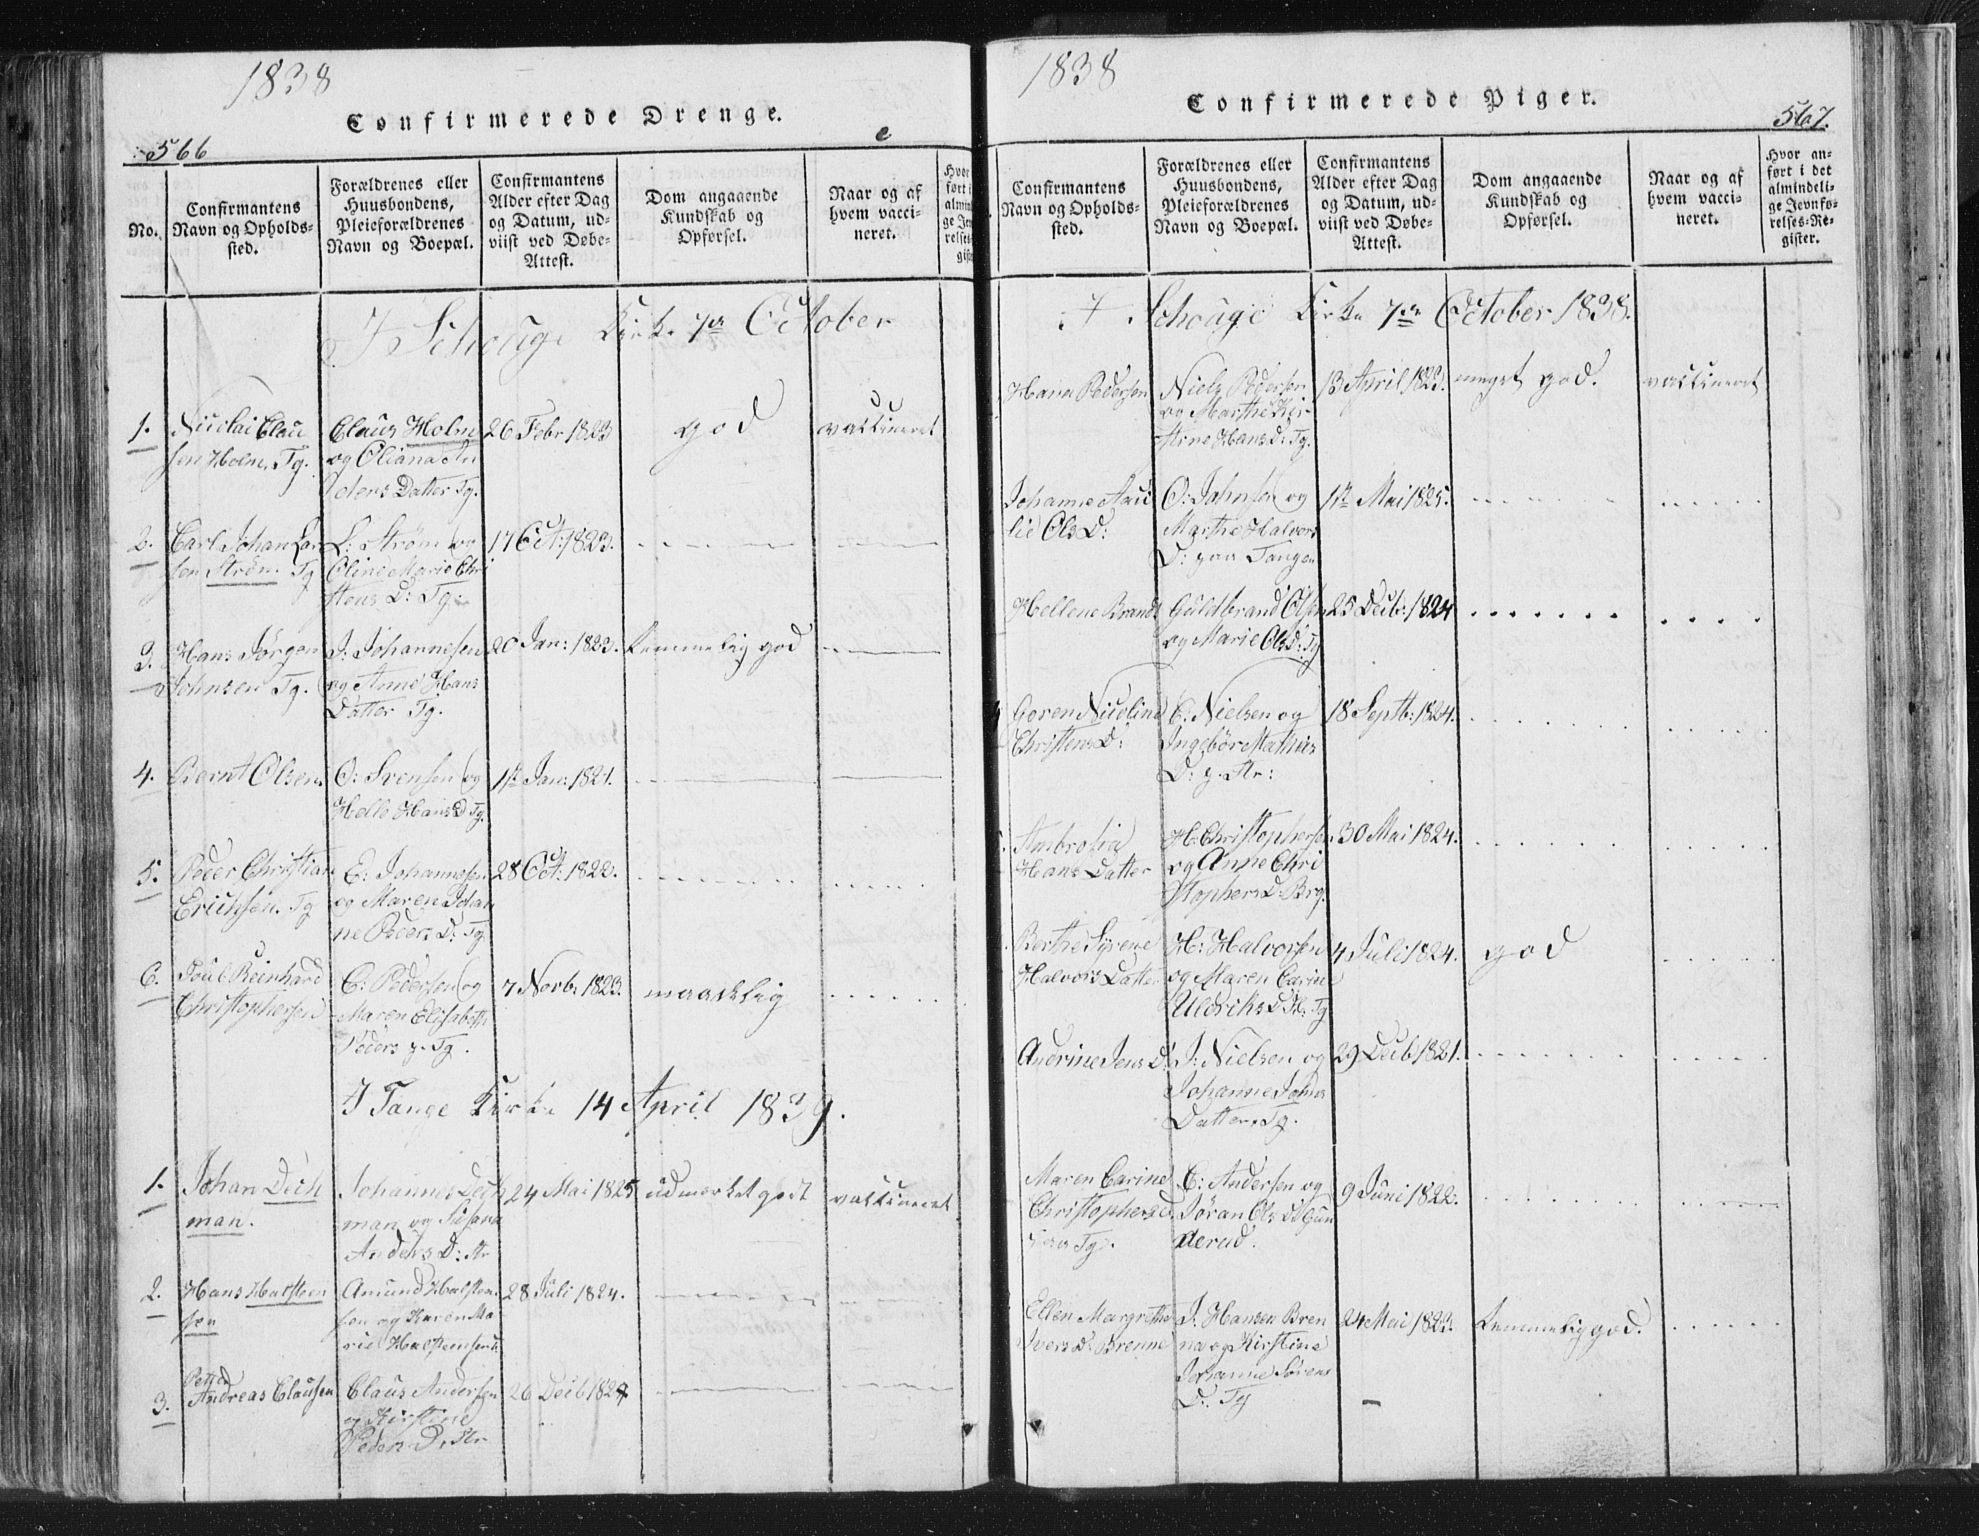 1838
Confirmerede Drenge.
566
No.
Confirmantens
Navn og Opholds-
sted.
Forældrenes eller
Huusbondens,
Pleieforældrenes
Navn og Boepæl.
Confirmantens
Alder efter Dag
og Datum, ud-
viist ved Døbe-
Attest.
Dom angaaende
Kundskab og
Opførsel.
Naar og af
hvem vacci-
neret.
I Schouge Kirke 7de October
1.
Nicolai Clau
sen Holm. Tg.
Claus Holm
og Oliana An
ders Datter Tg.
26 Febr 1823
god
vaccineret
2.
Carl Johan Lar
sen Strøm. Tg
L: Strøm og
Oline Marie Chri
stens D: Tg.
17 Oct: 1823.
3.
Hans Jørgen
Johnsen Tg.
J: Johannesen
og Anne Hans
Datter Tg.
20 Jan: 1823.
temmelig god
4.
Bernt Olsen
O: Svensen og
Helle Hans D Tg.
1ste Jan: 1821.
5.
Peder Christian
Erichsen. Tg
E: Johannesen
og Maren Johan
ne Peders D: Tg
28 Oct: 1822.
6.
Poul Reinhard
Christophersen
C: Pedersen og
Maren Elisabeth
Peders p. Tg.
7 Novb: 1823.
maadelig
I Tange Kirke 14 April 1839.
1.
Johan Deich
man.
Johannes Deich
man og Susana
Anders D: Str
24 Mai 1825
udmærket godt
vaccineret
2.
Hans Halsteen
sen
Amund Halsteen
sen og Karen Ma
rie Halsteensen
28 Juli 1824.
3.
Petter
Andreas Clausen
Claus Andersen
og Kirstine
Peders D. Str
26 Decb 1824
1838
Confirmerede Piger.
567.
Confirmantens
Navn og Opholds-
sted.
Forældrenes eller
Huusbondens,
Pleieforældrenes
Navn og Boepæl.
Confirmantens
Alder efter Dag
og Datum, ud-
viist ved Døbe-
Attest.
Dom angaaende
Kundskab og
Opførsel.
Naar og af
hvem vacci-
neret.
Hvor an-
ført i det
almindeli-
ge Jevnfø-
relses-Re-
gister.
I Schouge Kirke 7de October 1838.
Hana Pedersen
Niels Pedersen
og Marthe Kir
stine Hans D: Tg.
13 April 1823.
meget god.
vaccineret
Johanne Au
lie Ols D:
O: Johnsen og
Marthe Halvors
D: paa Tangen
1ste Mai 1825.
Hellene Brandt
Guldbrand Olsen
og Marie Ols D: Tg
25 Decb: 1824
Goren Nicoline
Christens D:
C: Nielsen og
Ingebor Mathis
D: p. Str:
18 Septb: 1824.
Ambrosia
Hans Datter
H: Christophersen
og Anne Chri
stophers D: Brg.
30 Mai 1824.
Berthe Syrene
Halvors Datter
H: Halvorsen
og Maren Carine
Uldriks D Tg
4 Juli 1824.
god
Andrine Jens D:
J: Nielsen og
Johanne Johns
Datter, Tg.
29 Decb 1821.
Maren Carine
Christophers D.
paa Tg.
C: Andersen og
Jøran Ols D Gun
derud.
9 Juni 1822.
Ellen Margrethe
Ivers D: Brenne
J: Hansen Bren
na og Kirstine
Johanne Sørens
D: Tg
24 Mai 1823.
temmelig god.